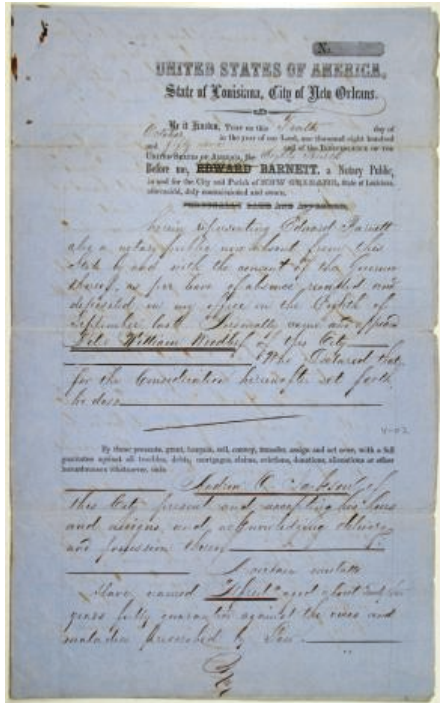 No.
UNITED STATES OF AMERICA,
State of Louisiana, City of New Orleans.
Be it Known, That on this Tenth day of
October in the year of our Lord, one thousand eight hundred
and fifty nine and of the INDEPENDENCE OF THE
UNITED STATES OF AMERICA, the Eighty fourth
Before me, EDWARD BARNETT, a Notary Public,
in and for the City and Parish of NEW ORLEANS, State of Louisiana,
aforesaid, duly commissioned and sworn,
PERSONALLY CAME AND APPEARED
herein representing Edward Barnett
also a notary public now absent from this
State by and with the consent of the Governor
thereof, as per leave of absence granted and
deposited in my office on the of
September last Personally came and appeared
William of this City
Who Declared that
for the Consideration hereinafter set forth
he does
4-02
By these presents, grant, bargain, sell, convey, transfer, assign and set over, with a full
guarantee against all troubles, debts, mortgages, claims, evictions, donations, alienations or other
incumbrances whatsoever, unto
Andrew of
this City present and accepting his heirs
and assigns, and acknowledging delivery
and possession thereof
A certain mulatto
Slave named aged about
years fully guaranteed against the vices and
maladies prescribed by Law